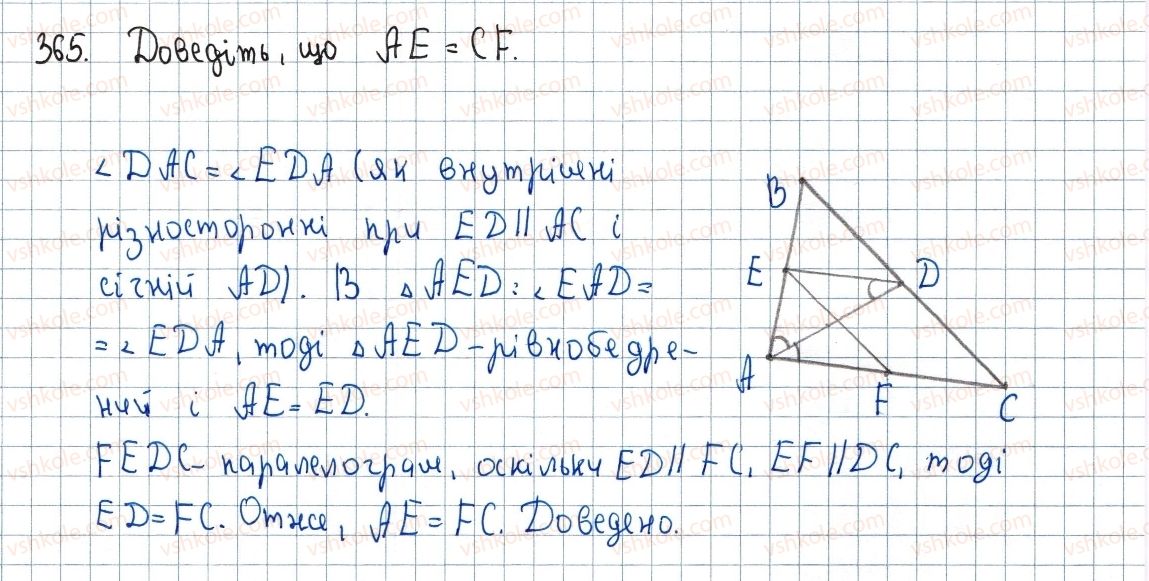 365. Доведіть, що AE = CF.
∠DAC = ∠EDA (як внутрішні
різносторонні при ED || AC і
січній AD). В ΔAED: ∠EAD =
= ∠EDA, тоді ΔAED - рівнобедре-
ний і AE = ED.
FEDC - паралелограм, оскільки ED || FC, EF || DC, тоді
ED = FC. Отже, AE = FC. Доведено.
B
E
D
A
F
C
vshkole.com